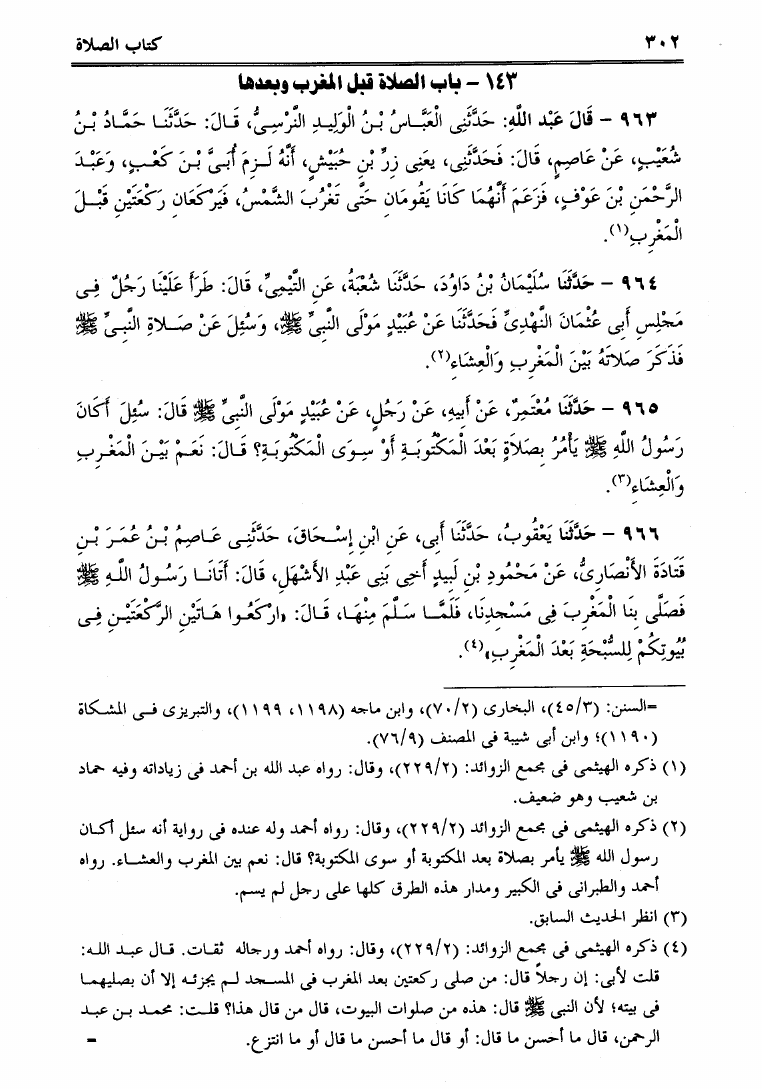 ٣٠٢ كتاب الصلاة
١٤٣ – باب الصلاة قبل المغرب وبعدها
٩٦٣ – قَالَ عَبْد اللَّهِ: حَدَّثَنِى الْعَبَّاسُ بْنُ الْوَلِيدِ النَّرْسِىُّ، قَالَ: حَدَّثَنَا حَمَّادُ بْنُ
شُعَيْبٍ، عَنْ عَاصِمٍ، قَالَ: فَحَدَّثَنِى، يَعْنِى زِرَّ بْنَ حُبَيْشٍ، أَنَّهُ لَزِمَ أُبَىَّ بْنَ كَعْبٍ، وَعَبْدَ
الرَّحْمَنِ بْنَ عَوْفٍ، فَزَعَمَ أَنَّهُمَا كَانَا يَقُومَانِ حَتَّى تَغْرُبَ الشَّمْسُ، فَيَرْكَعَانِ رَكْعَتَيْنِ قَبْلَ
الْمَغْرِبِ(١).
٩٦٤ – حَدَّثَنَا سُلَيْمَانُ بْنُ دَاوُدَ، حَدَّثَنَا شُعْبَةُ، عَنِ التَّيْمِىِّ، قَالَ: طَرَأَ عَلَيْنَا رَجُلٌ فِى
مَجْلِسِ أَبِى عُثْمَانَ النَّهْدِىِّ فَحَدَّثَنَا عَنْ عُبَيْدٍ مَوْلَى النَّبِىِّ ﷺ، وَسُئِلَ عَنْ صَلاةِ النَّبِىِّ ﷺ
فَذَكَرَ صَلاتَهُ بَيْنَ الْمَغْرِبِ وَالْعِشَاءِ(٢).
٩٦٥ – حَدَّثَنَا مُعْتَمِرٌ، عَنْ أَبِيهِ، عَنْ رَجُلٍ، عَنْ عُبَيْدٍ مَوْلَى النَّبِىِّ ﷺ قَالَ: سُئِلَ أَكَانَ
رَسُولُ اللَّهِ ﷺ يَأْمُرُ بِصَلاَةٍ بَعْدَ الْمَكْتُوبَةِ أَوْ سِوَى الْمَكْتُوبَةِ؟ قَالَ: نَعَمْ بَيْنَ الْمَغْرِبِ
وَالْعِشَاءِ(٣).
٩٦٦ – حَدَّثَنَا يَعْقُوبُ، حَدَّثَنَا أَبِى، عَنِ ابْنِ إِسْحَاقَ، حَدَّثَنِى عَاصِمُ بْنُ عُمَرَ بْنِ
قَتَادَةَ الأَنْصَارِىُّ، عَنْ مَحْمُودِ بْنِ لَبِيدٍ أَخِى بَنِى عَبْدِ الأَشْهَلِ، قَالَ: أَتَانَا رَسُولُ اللَّهِ ﷺ
فَصَلَّى بِنَا الْمَغْرِبَ فِى مَسْجِدِنَا، فَلَمَّا سَلَّمَ مِنْهَا، قَالَ: «ارْكَعُوا هَاتَيْنِ الرَّكْعَتَيْنِ فِى
بُيُوتِكُمْ لِلسُّبْحَةِ بَعْدَ الْمَغْرِبِ»(٤).
=السنن: (٤٥/٣)، البخارى (٧٠/٢)، وابن ماجه (١١٩٨، ١١٩٩)، والتبريزى فى المشكاة
(١١٩٠)؛ وابن أبى شيبة فى المصنف (٧٦/٩).
(١) ذكره الهيثمى فى مجمع الزوائد: (٢٢٩/٢)، وقال: رواه عبد الله بن أحمد فى زياداته وفيه حماد
بن شعيب وهو ضعيف.
(٢) ذكره الهيثمى فى مجمع الزوائد (٢٢٩/٢)، وقال: رواه أحمد وله عنده فى رواية أنه سئل أكان
رسول الله ﷺ يأمر بصلاة بعد المكتوبة أو سوى المكتوبة؟ قال: نعم بين المغرب والعشاء. رواه
أحمد والطبرانى فى الكبير ومدار هذه الطرق كلها على رجل لم يسم.
(٣) انظر الحديث السابق.
(٤) ذكره الهيثمى فى مجمع الزوائد: (٢٢٩/٢)، وقال: رواه أحمد ورجاله ثقات. قال عبد الله:
قلت لأبى: إن رجلاً قال: من صلى ركعتين بعد المغرب فى المسجد لم يجزئه إلا أن يصليهما
فى بيته؛ لأن النبى ﷺ قال: هذه من صلوات البيوت، قال من قال هذا؟ قلت: محمد بن عبد
الرحمن، قال ما أحسن ما قال: أو قال ما أحسن ما قال أو ما انتزع. =